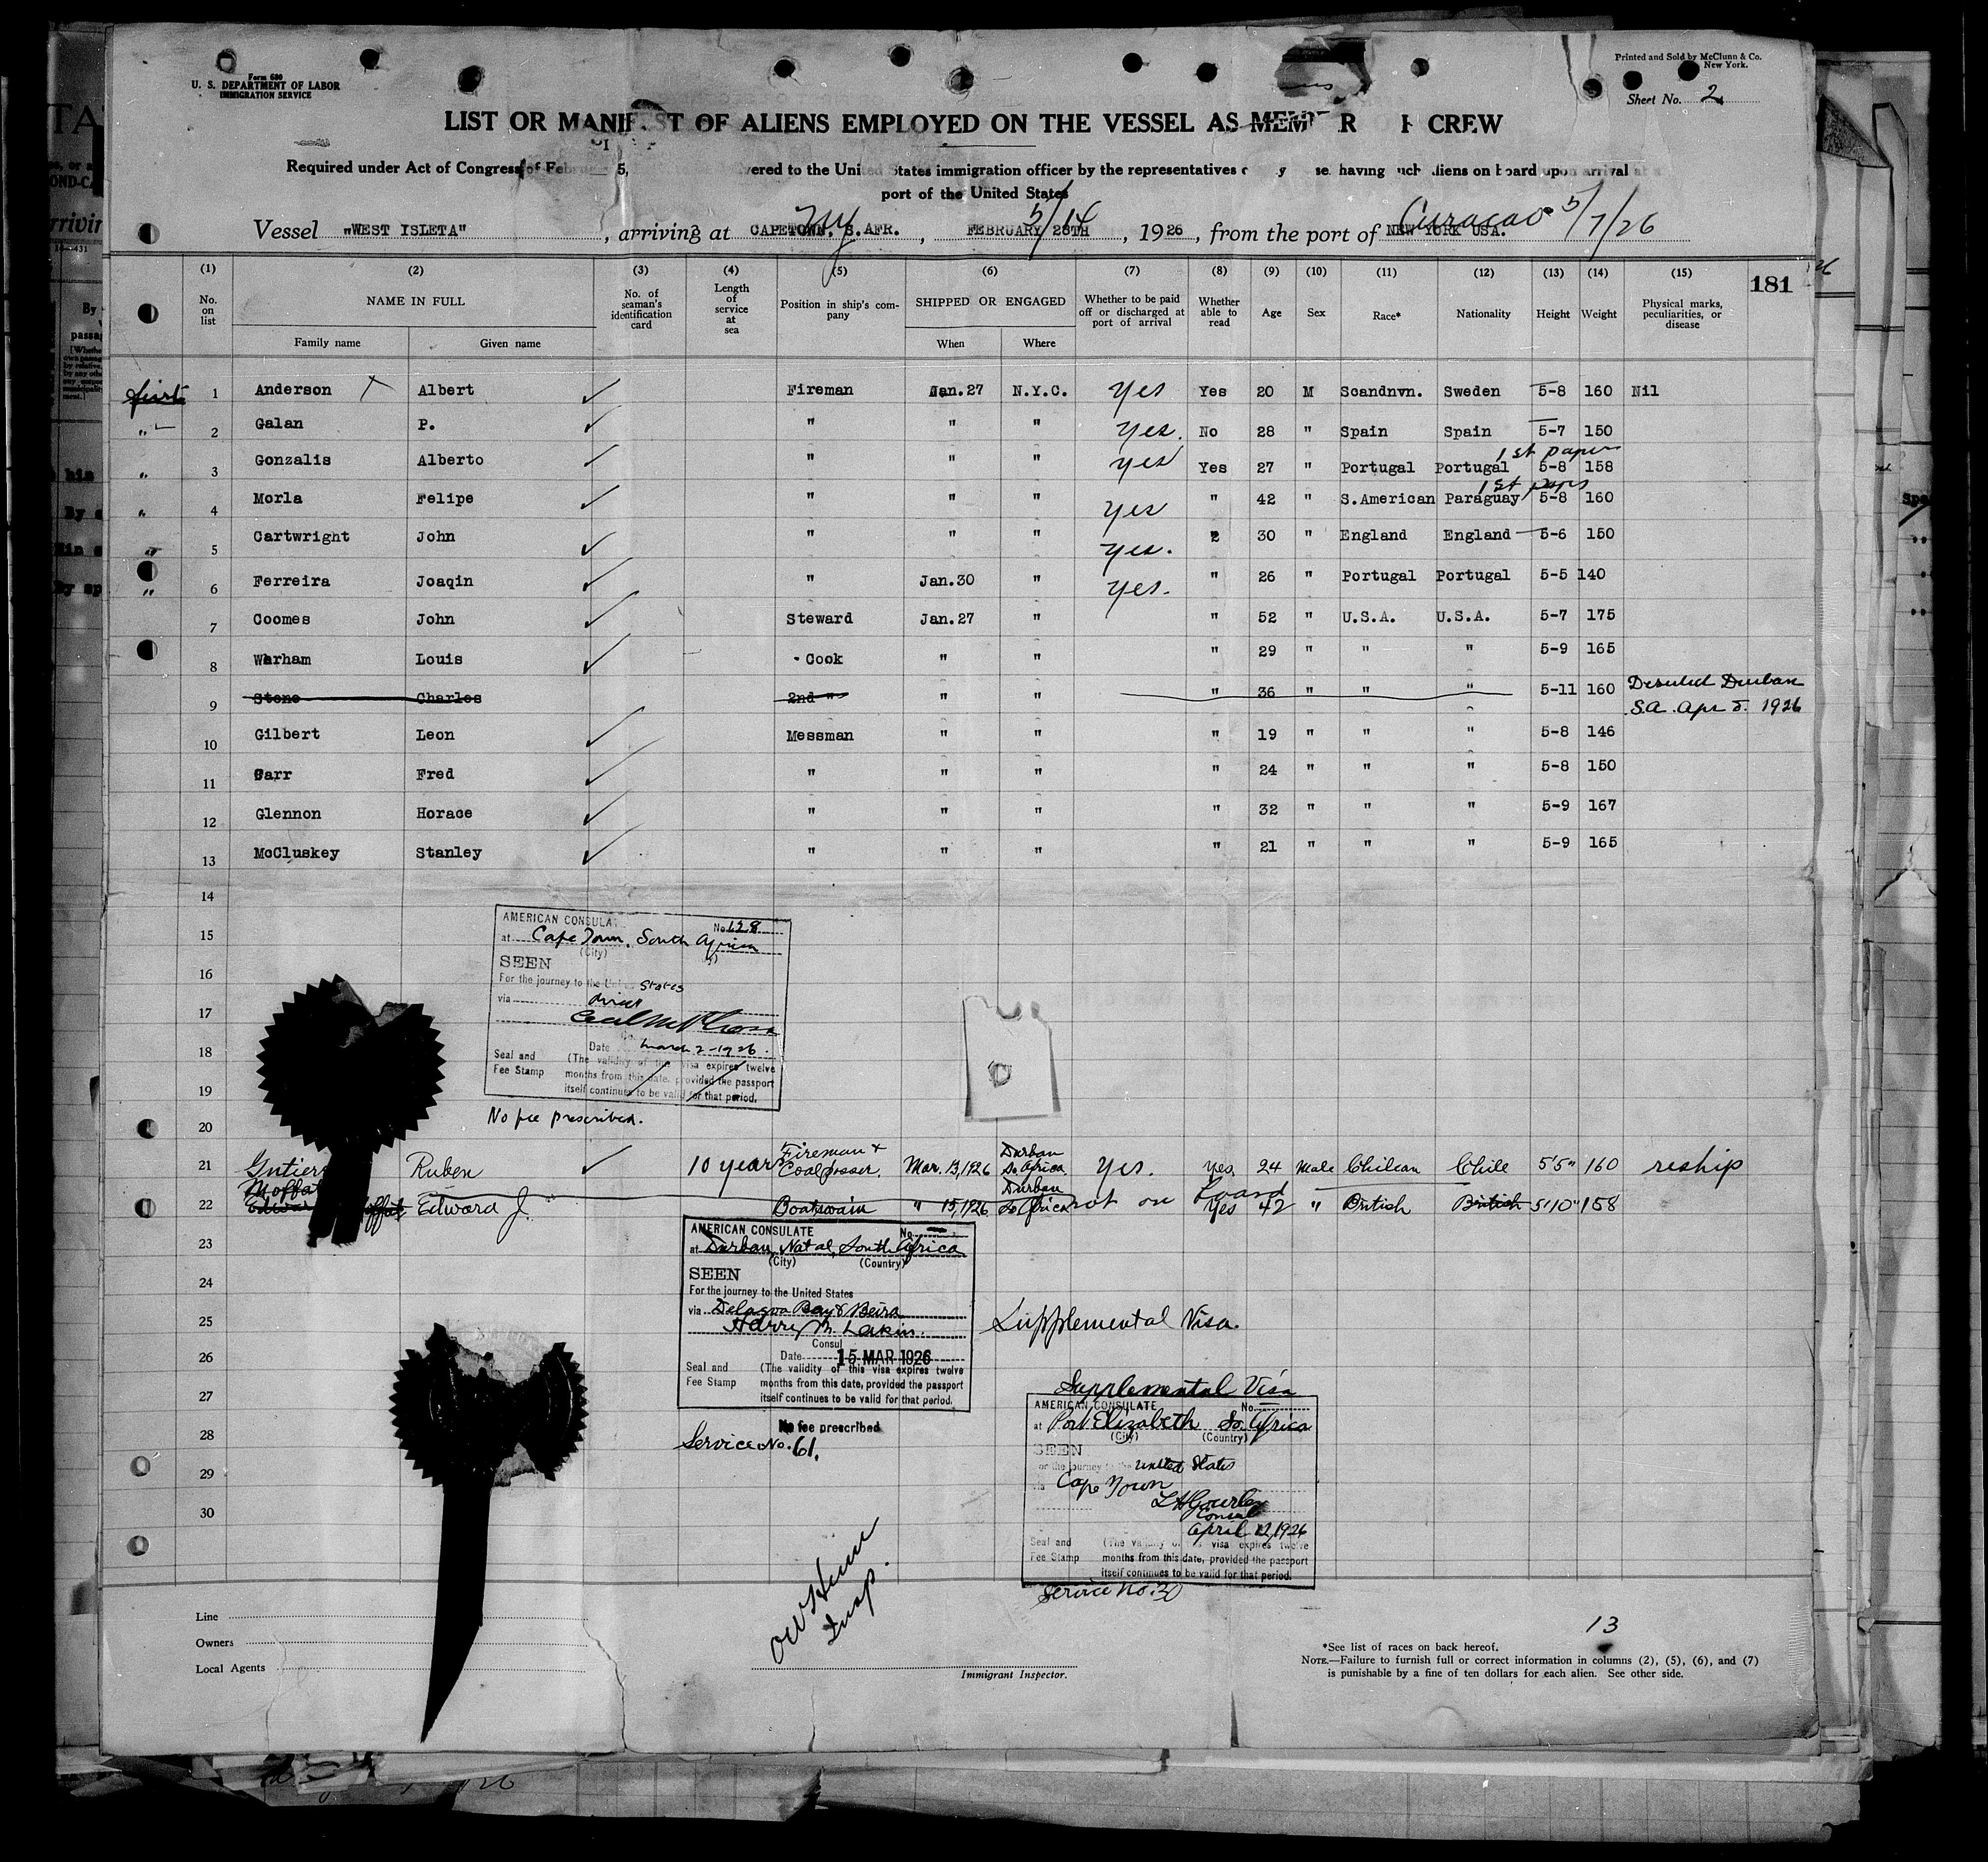 Form 680
U. S. DEPARTMENT OF LABOR
IMMIGRATION SERVICE
Printed and Sold by McClunn & Co.
New York.
Sheet No. 2
LIST OR MANIF ST OF ALIENS EMPLOYED ON THE VESSEL AS MEM R CREW
Required under Act of Congress of 5, vered to the United States immigration officer by the representatives having such aliens on board upon arrival
port of the United States
Vessel "WEST ISLETA" , arriving at CAPETOWN, S.AFR. NY , FEBRUARY 28TH 5/14 , 1926 , from the port of NEW YORK USA. Curacao 5/7/26
181
(1) (2) (3) (4) (5) (6) (7) (8) (9) (10) (11) (12) (13) (14) (15)
No. on list
NAME IN FULL
Family name Given name
No. of seaman's identification card
Length of service at sea
Position in ship's company
SHIPPED OR ENGAGED
When Where
Whether to be paid off or discharged at port of arrival
Whether able to read
Age Sex Race* Nationality Height Weight
Physical marks, peculiarities, or disease
first 1 Anderson X Albert ✓ Fireman Jan.27 N.Y.C. Yes Yes 20 M Scandnvn. Sweden 5-8 160 Nil
" 2 Galan P. ✓ " " " Yes. No 28 " Spain Spain 5-7 150
1st paper
" 3 Gonzalis Alberto ✓ " " " yes Yes 27 " Portugal Portugal 5-8 158
1st paper
" 4 Morla Felipe ✓ " " " Yes " 42 " S.American Paraguay 5-8 160
" 5 Cartwright John ✓ " " " yes. " 30 " England England 5-6 150
" 6 Ferreira Joaqin ✓ " Jan.30 " yes. " 26 " Portugal Portugal 5-5 140
7 Coomes John ✓ Steward Jan.27 " " 52 " U.S.A. U.S.A. 5-7 175
8 Warham Louis ✓ Cook " " " 29 " " " 5-9 165
9 Stone Charles 2nd " " " " 36 " " " 5-11 160 Deserted Durban
S.A. Apr 5. 1926
10 Gilbert Leon ✓ Messman " " " 19 " " " 5-8 146
11 Carr Fred ✓ " " " " 24 " " " 5-8 150
12 Glennon Horace ✓ " " " " 32 " " " 5-9 167
13 McCluskey Stanley ✓ " " " " 21 " " " 5-9 165
14
15
16
17
18
19
20
AMERICAN CONSULAT No. 128
at Cape Town, South Africa
(City)
SEEN
For the journey to the United States
via direct
Date March 2-1926.
Seal and Fee Stamp
(The validity of this visa expires twelve
months from this date, provided the passport
itself continues to be valid for that period.
No fee prescribed.
21 Gutier Ruben ✓ 10 years Fireman & Coal passer. Mar. 13, 1926 Durban So Africa. Yes. Yes. 24 Male Chilean Chile 5'5" 160 reship
Moffat
22 Edwar offat Edward J. Boatswain " 15, 1926 Durban So Africa not on board Yes 42 " British British 5'10" 158
23
24
25
26
27
28
29
30
AMERICAN CONSULATE No.
at Durban, Natal, South Africa
(City) (Country)
SEEN
For the journey to the United States
via Delagoa Bay & Beira
Harry M. Lakin.
Consul
Date 15 MAR 1926
Seal and Fee Stamp
(The validity of this visa expires twelve
months from this date, provided the passport
itself continues to be valid for that period.
No fee prescribed
Service No. 61.
Supplemental Visa.
Supplemental Visa
AMERICAN CONSULATE No.
at Port Elizabeth So. Africa
(City) (Country)
SEEN
or the journey to the United States
via Cape Town
Consul
April 12, 1926
Seal and Fee Stamp
(The validity of this visa expires twelve
months from this date, provided the passport
itself continues to be valid for that period.
Service No. 30
Insp.
Line
Owners
Local Agents
Immigrant Inspector.
13
*See list of races on back hereof.
NOTE.—Failure to furnish full or correct information in columns (2), (5), (6), and (7)
is punishable by a fine of ten dollars for each alien. See other side.